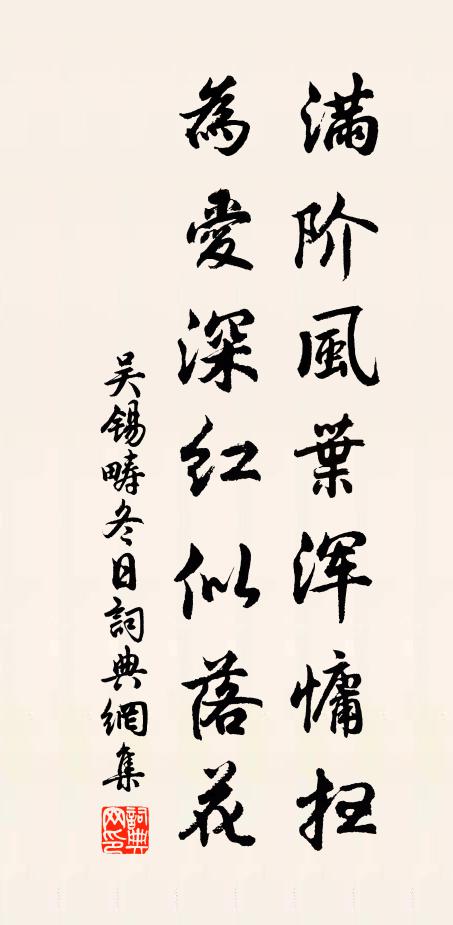 满阶風葉浑慵扫
為愛深红似落花
吴锡畴冬日詞典網集
詞典網印